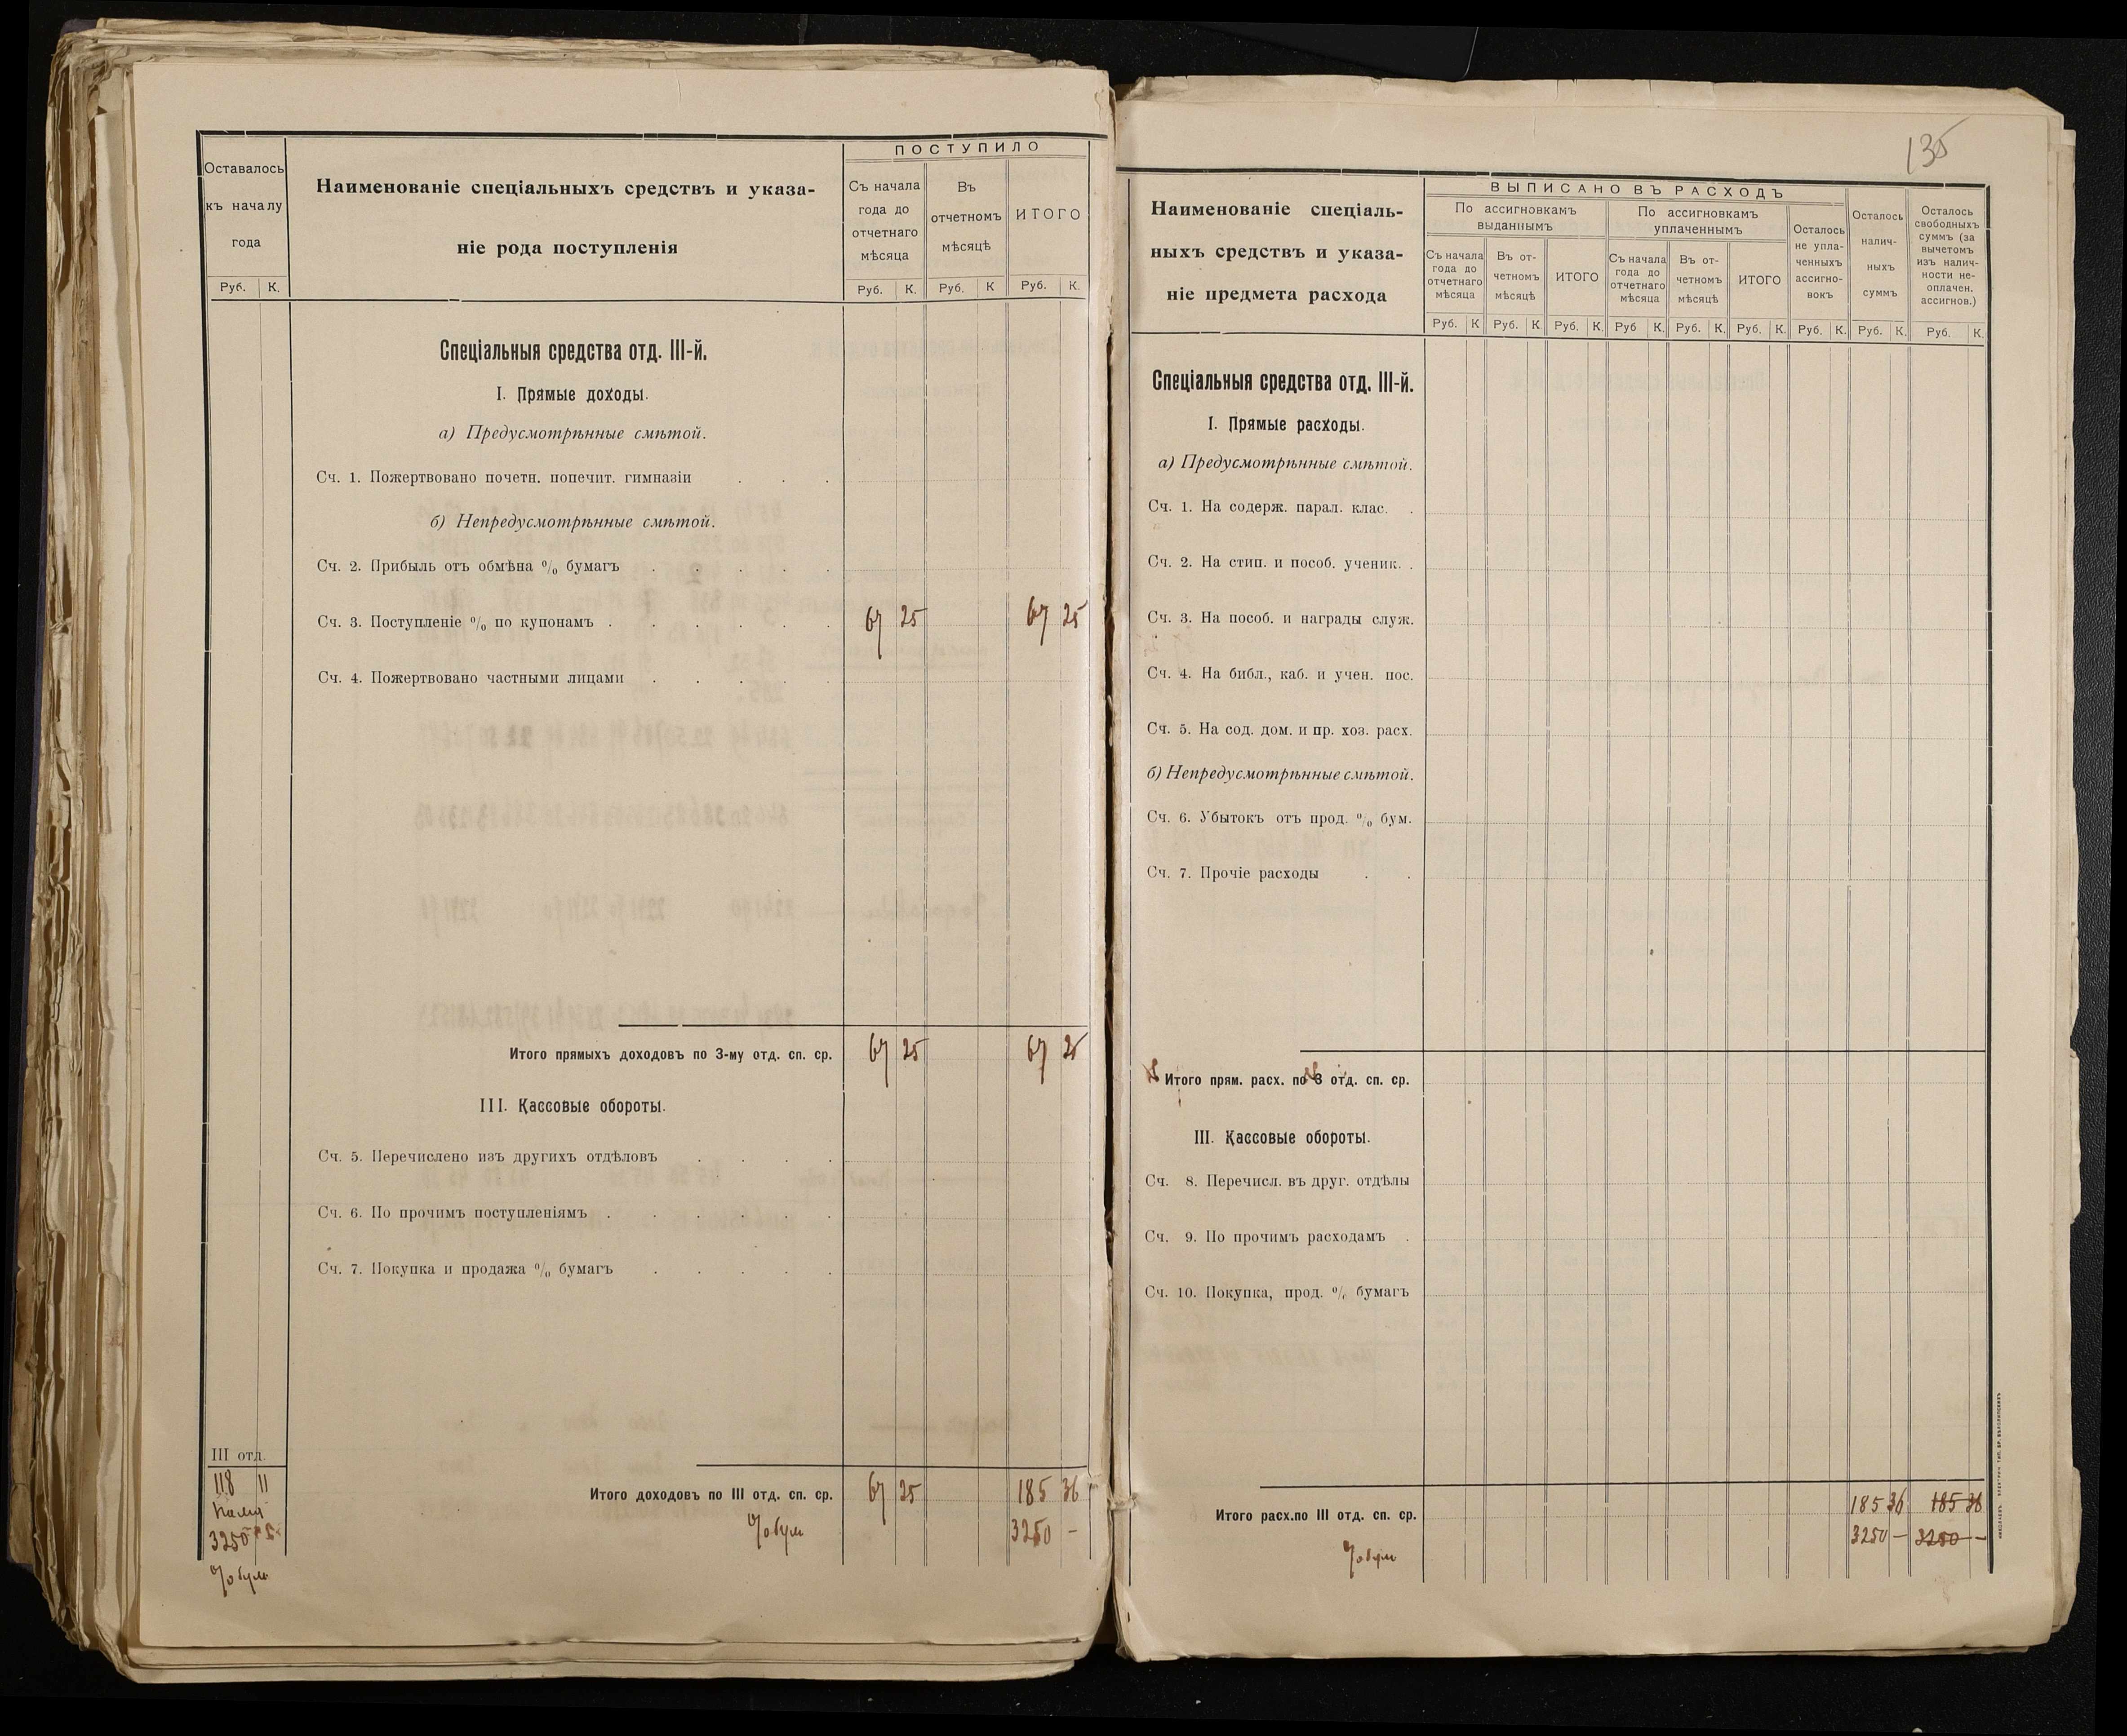 Оставалось
къ началу
года
Руб. К.
Наименованіе спеціальныхъ средствъ и указа-
ніе рода поступленія
ПОСТУПИЛО
Съ начала
года до
отчетнаго
мѣсяца
Въ
отчетномъ
мѣсяцѣ
ИТОГО
Руб. К. Руб. К Руб. К.
Спеціальныя средства отд. III-й.
I. Прямые доходы.
а) Предусмотрѣнные смѣтой.
Сч. 1. Пожертвовано почетн. попечит. гимназіи . . .
б) Непредусмотрѣнные смѣтой.
Сч. 2. Прибыль отъ обмѣна % бумагъ . . . . .
Сч. 3. Поступленіе % по купонамъ . . . . . . 67 25 67 25
Сч. 4. Пожертвовано частными лицами . . . . .
Итого прямыхъ доходовъ по 3-му отд. сп. ср. 67 25 67 25
III. Кассовые обороты.
Сч. 5. Перечислено изъ другихъ отдѣловъ . . . .
Сч. 6. По прочимъ поступленіямъ . . . . . .
Сч. 7. Покупка и продажа % бумагъ . . . . .
III отд.
118 11
Итого доходовъ по III отд. сп. ср. 67 25 185 36
налич
3250
% бум 3250 -
% бум
135
Наименованіе спеціаль-
ныхъ средствъ и указа-
ніе предмета расхода
ВЫПИСАНО ВЪ РАСХОДЪ
По ассигновкамъ
выданнымъ
По ассигновкамъ
уплаченнымъ
Съ начала
года до
отчетнаго
мѣсяца
Въ от-
четномъ
мѣсяцѣ
ИТОГО
Съ начала
года до
отчетнаго
мѣсяца
Въ от-
четномъ
мѣсяцѣ
ИТОГО
Осталось
не упла-
ченныхъ
ассигно-
вокъ
Осталось
налич-
ныхъ
суммъ
Осталось
свободныхъ
суммъ (за
вычетомъ
изъ налич-
ности не-
оплачен.
ассигнов.)
Руб. К Руб. К. Руб. К. Руб К. Руб. К. Руб. К. Руб. К. Руб. К. Руб. К.
Спеціальныя средства отд. III-й.
I. Прямые расходы.
а) Предусмотрѣнные смѣтой.
Сч. 1. На содерж. парал. клас. .
Сч. 2. На стип. и пособ. ученик. .
Сч. 3. На пособ. и награды служ.
Сч. 4. На библ., каб. и учен. пос.
Сч. 5. На сод. дом. и пр. хоз. расх.
б) Непредусмотрѣнные смѣтой.
Сч. 6. Убытокъ отъ прод. % бум.
Сч. 7. Прочіе расходы . .
Итого прям. расх. по 3 отд. сп. ср.
III. Кассовые обороты.
Сч. 8. Перечисл. въ друг. отдѣлы
Сч. 9. По прочимъ расходамъ .
Сч. 10. Покупка, прод. % бумагъ
Итого расх.по III отд. сп. ср. 185 36 185 36
% бум 3250 - 3250 -